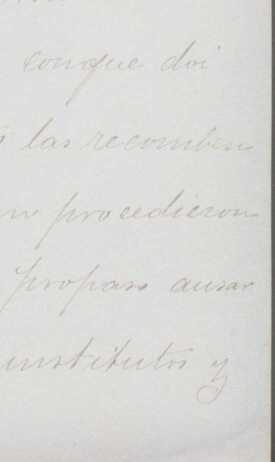 conque doi
las recomben
procedieron
propaso ausar
institutos y